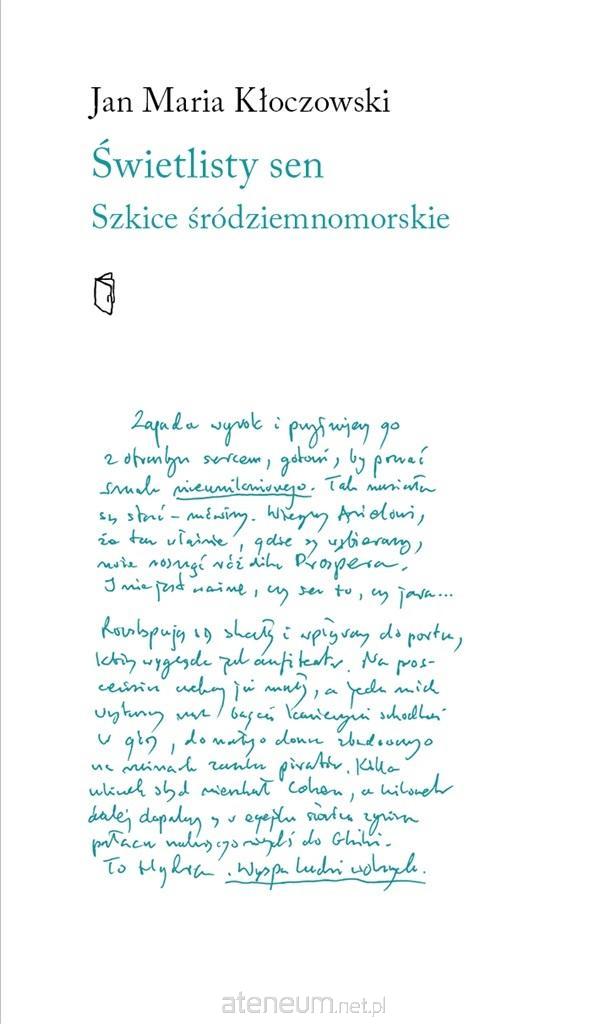 Jan Maria Kłoczowski
Świetlisty sen
Szkice śródziemnomorskie
Zapada wyrok i przyjmujemy go
z otwartym sercem, gotowi, by poznać
smak nieuniknionego. Tak musiało
się stać – mówimy. Wierzymy Arielowi,
że tam właśnie, gdzie się wybieramy,
może sięgnąć różdżka Prospera.
I nie jest ważne, czy sen to, czy jawa...
Rozstępują się skały i wpływamy do portu,
który wygląda jak amfiteatr. Na
czekają już muły, a jeden z nich
bagaż kamiennymi schodkami
w górę, do małego domu zbudowanego
na ruinach zamku piratów. Kilka
uliczek stąd mieszkał Cohen, a kilometr
dalej dopalały się w ogniu
pałacu należącego niegdyś do Ghiki.
To Hydra. Wyspa ludzi wolnych.
ateneum.net.pl